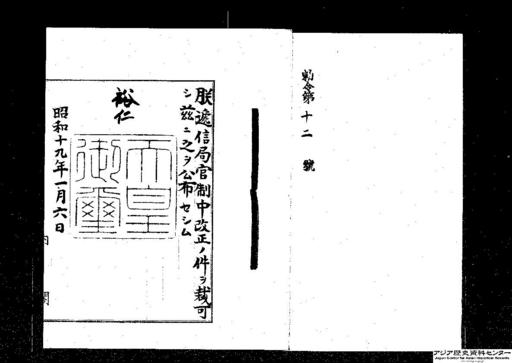 勅令第十二號
朕遞信局官制中改正ノ件ヲ裁可
シ茲ニ之ヲ公布セシム
裕仁
天皇
御璽
昭和十九年一月六日
内閣
アジア歴史資料センター
Japan Center for Asian Historical Records